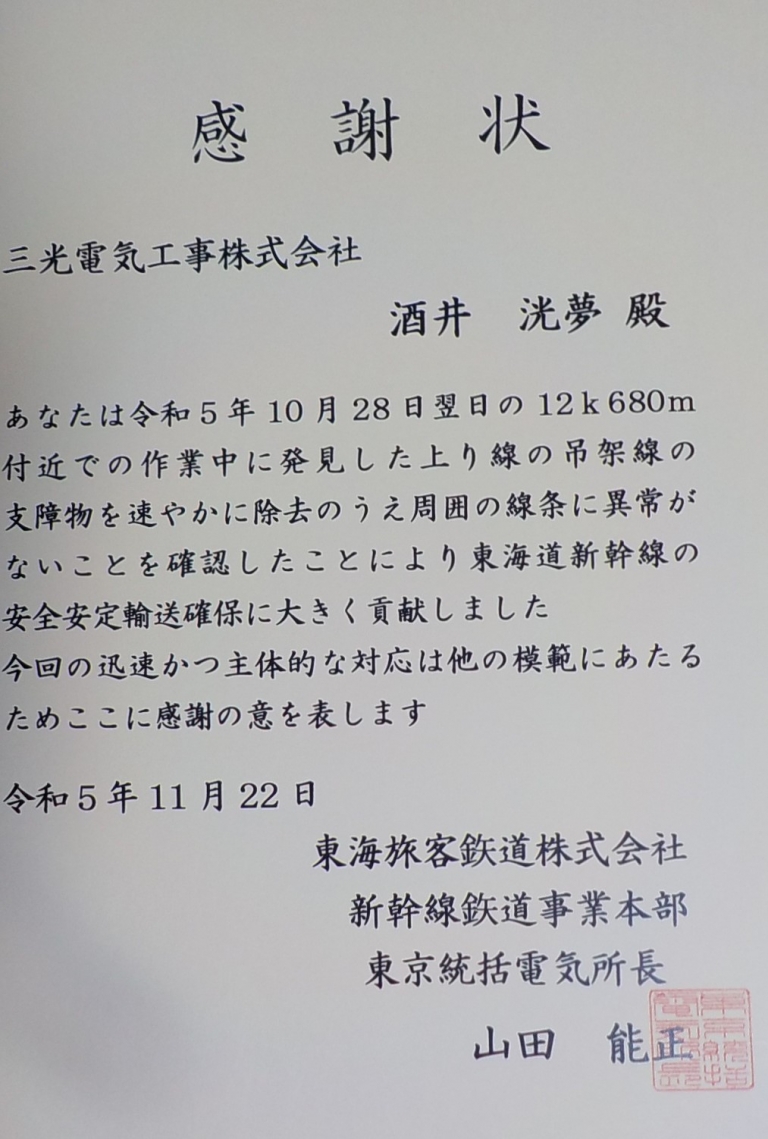 感謝状
三光電気工事株式会社
酒井 洸夢 殿
あなたは令和5年10月28日翌日の12k680m
付近での作業中に発見した上り線の吊架線の
支障物を速やかに除去のうえ周囲の線条に異常が
ないことを確認したことにより東海道新幹線の
安全安定輸送確保に大きく貢献しました
今回の迅速かつ主体的な対応は他の模範にあたる
ためここに感謝の意を表します
令和5年11月22日
東海旅客鉃道株式会社
新幹線鉃道事業本部
東京統括電気所長
山田 能正